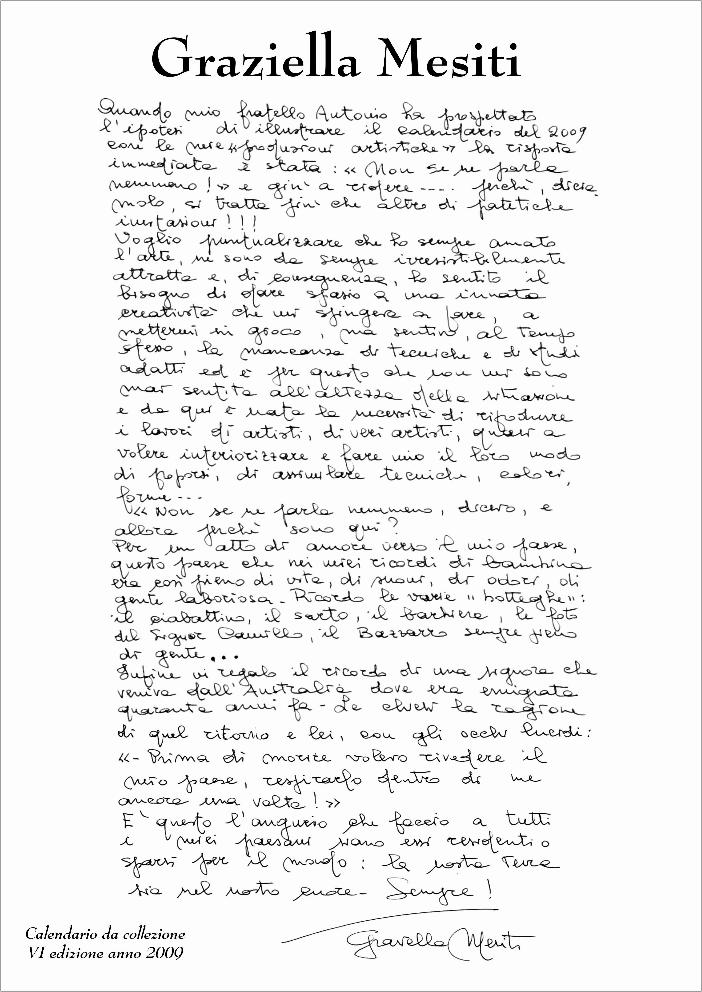 Graziella Mesiti
Quando mio fratello Antonio ha prospettato
l'ipotesi di illustrare il calendario del 2009
con le mie «produzioni artistiche» la risposta
immediata è stata: «Non se ne parla
nemmeno!» e giù a ridere .... perchè, dicia
molo, si tratta più che altro di patetiche
imitazioni!!!
Voglio puntualizzare che ho sempre amato
l'arte, mi sono da sempre irresistibilmente
attratta e, di conseguenza, ho sentito il
bisogno di dare spazio a una innata
creatività che mi spingeva a fare, a
mettermi in gioco, ma sentivo, al tempo
stesso, la mancanza di tecniche e di studi
adatti ed è per questo che non mi sono
mai sentita all'altezza della situazione
e da qui è nata la necessità di riprodurre
i lavori di artisti, di veri artisti, quasi a
volere interiorizzare e fare mio il loro modo
di porsi, di assimilare tecniche, colori,
forme ...
«Non se ne parla nemmeno, dicevo, e
allora perchè sono qui?
Per un atto di amore verso il mio paese,
questo paese che nei miei ricordi di bambina
era così pieno di vita, di suoni, di odori, di
gente laboriosa - Ricordo le varie "botteghe":
il ciabattino, il sarto, il barbiere, le foto
del Signor Camillo, il Bazzarro sempre pieno
di gente...
Infine vi regalo il ricordo di una signora che
veniva dall'Australia dove era emigrata
quaranta anni fa - Le chiesi la ragione
di quel ritorno e lei, con gli occhi lucidi:
«- Prima di morire volevo rivedere il
mio paese, respirarlo dentro di me
ancora una volta!»
E' questo l'augurio che faccio a tutti
i miei paesani siano essi residenti o
sparsi per il mondo: la nostra Terra
sia nel nostro cuore - Sempre!
Graziella Mesiti
Calendario da collezione
VI edizione anno 2009